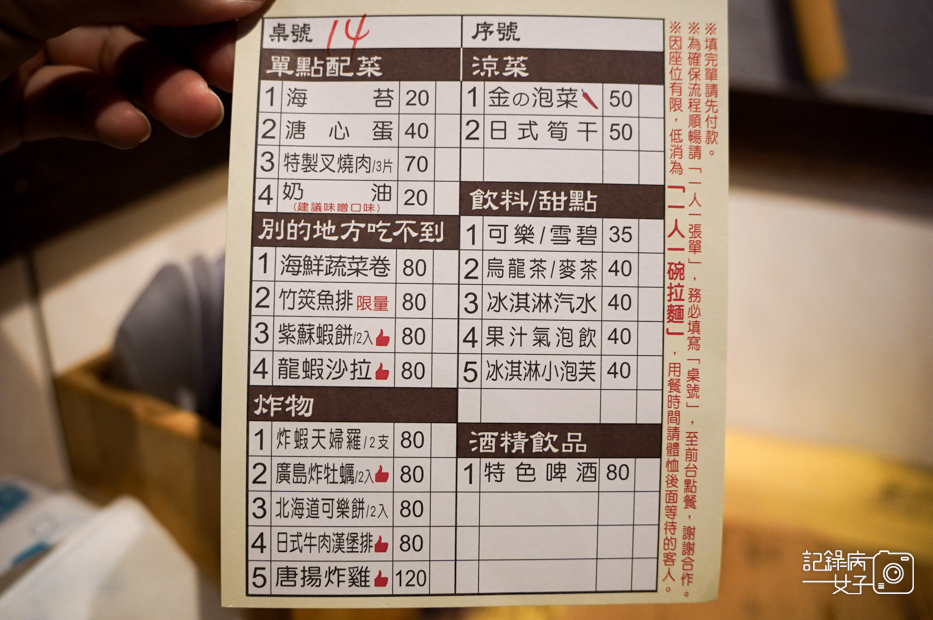 桌號 14
序號
單點配菜
1 海苔 20
2 溏心蛋 40
3 特製叉燒肉/3片 70
4 奶油 20
(建議味噌口味)
別的地方吃不到
1 海鮮蔬菜卷 80
2 竹筴魚排 限量 80
3 紫蘇蝦餅/2入 80
4 龍蝦沙拉 80
炸物
1 炸蝦天婦羅/2支 80
2 廣島炸牡蠣/2入 80
3 北海道可樂餅/2入 80
4 日式牛肉漢堡排 80
5 唐揚炸雞 120
涼菜
1 金の泡菜 50
2 日式筍干 50
飲料/甜點
1 可樂/雪碧 35
2 烏龍茶/麥茶 40
3 冰淇淋汽水 40
4 果汁氣泡飲 40
5 冰淇淋小泡芙 40
酒精飲品
1 特色啤酒 80
※填完單請先付款。
※為確保流程順暢請「一人一張單」，務必填寫「桌號」，至前台點餐，謝謝合作。
※因座位有限，低消為「一人一碗拉麵」，用餐時間請體恤後面等待的客人。
記錄病
女子